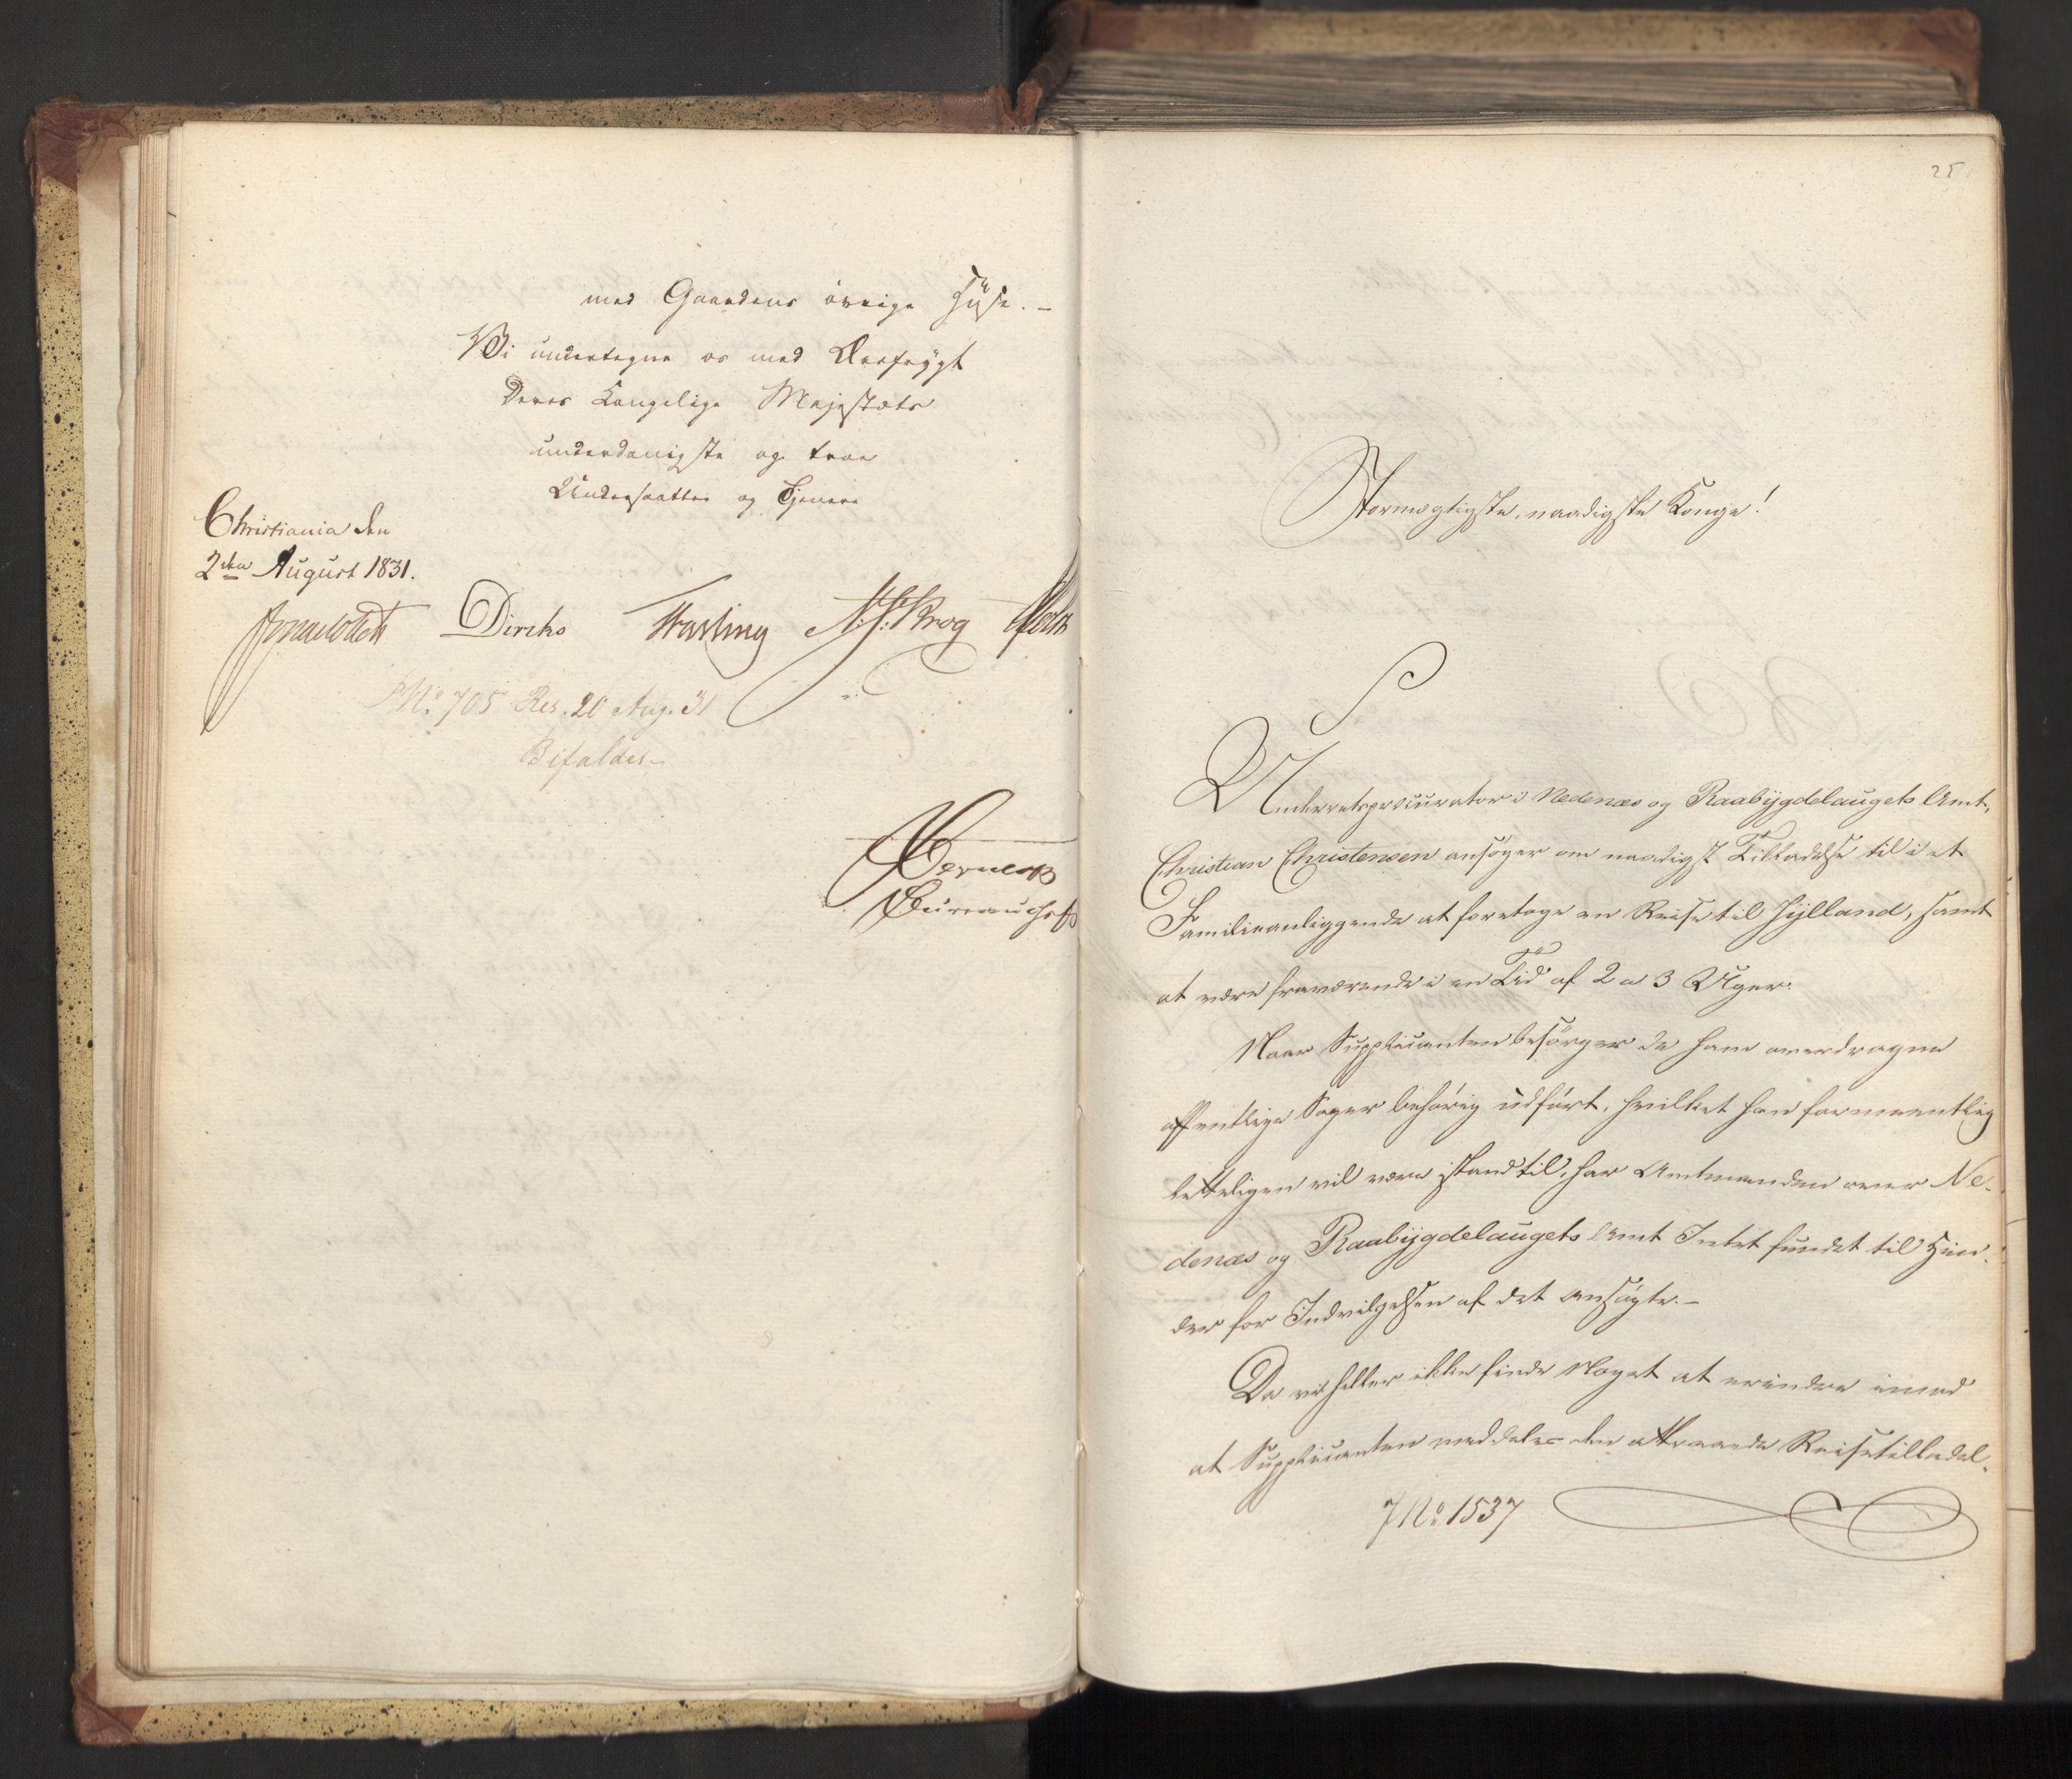 med Gaardens övrige Huse. —
Vi undertegne os med Ærefrygt
Deres Kongelige Majestæts
underdanigste og troe
Undersaatter og Tjenere
Christiania den
2den August 1831.
Diriks Fasting N. J. Krog
No 705 Res. 20 Aug. 31
Bifaldes —
Bureauchef
25
Stormægtigste, naadigste Konge!
Underretsprocurator i Nedenæs og Raabygdelaugets Amt,
Christian Christensen ansøger om naadigst Tilladelse til i et
Familieanliggende at foretage en Reise til Jylland, samt
at være fraværende i en Tid af 2 a 3 Uger.
Naar Supplicanten besørger de ham overdragne
offentlige Sager behørig udført, hvilket han formeentlig
letteligen vil være istand til, har Amtmanden over Ne-
denæs og Raabygdelaugets Amt Intet fundet til Hin-
der for Indvilgelsen af det Ansøgte. —
Da vi heller ikke finde Noget at erindre imod
at Supplicanten meddeles den attraaede Reisetilladel-
7 No 1537